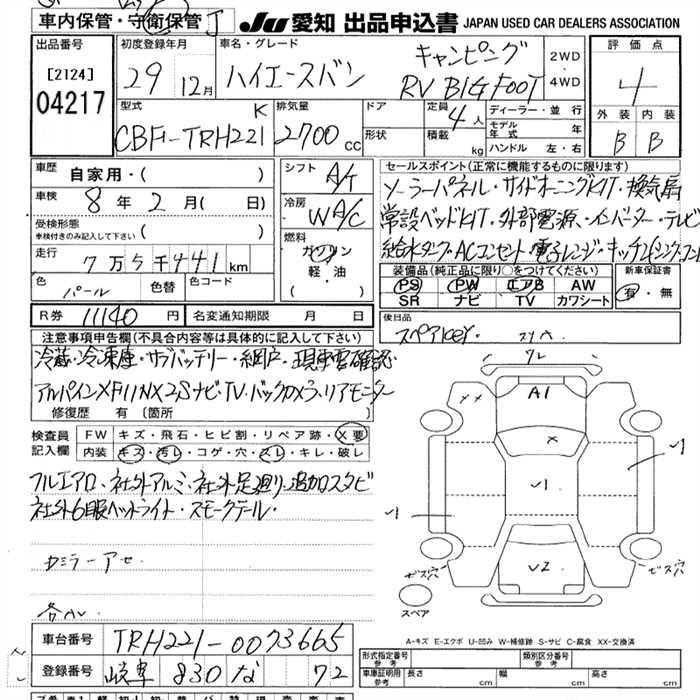 車内保管・守衛保管 J
JU 愛知 出品申込書 JAPAN USED CAR DEALERS ASSOCIATION
出品番号
[2124]
04217
初度登録年月
29 12月
車名・グレード
ハイエースバン
キャンピング
RV BIG FOOT
2WD
4WD
評価点
4
外装 内装
B B
型式
K
CBF-TRH221
排気量
2700 cc
ドア
形状
定員
4人
積載 kg
ディーラー・並行
モデル年式 年
ハンドル 左・右
車歴
自家用・( )
車検
8年2月( 日)
受検形態
車検付きのみ記入して下さい ( )
走行
7万5千441km
色 パール
色替
色コード
シフト A/T
冷房 WA/C
燃料
ガソリン
軽・油
R券 11140 円
名変通知期限 月 日
セールスポイント(正常に機能するものに限ります)
ソーラーパネル・サイドオーニングKIT・換気扇
常設ベッドKIT・外部電源・インバーター・テレビ
給水タンク・ACコンセント・電子レンジ・キッチン
装備品(純正品に限り○をつけてください)
PS PW エアB AW
SR ナビ TV カワシート
新車保証書
有・無
後日品
スペアkey・
注意事項申告欄(不具合内容等は具体的に記入して下さい)
冷蔵・冷凍庫・サブバッテリー・網戸・現車要確認
アルパインXF11NX2Sナビ・TV・バックカメラ・リアモニター
修復歴 有(箇所
検査員
記入欄
FW キズ・飛石・ヒビ割・リペア跡・X要
内装 キズ・汚レ・コゲ・穴・スレ・キレ・破レ
フルエアロ・社外アルミ・社外足廻り・追加スタビ
社外6眼ヘッドライト・スモークテール・
カミラーアセ
各AL
フレ
A1
××
×
√1
√1
√1
√2
ビス穴
ビス穴
スペア
A-キズ E-エクボ U-凹み W-補修跡 S-サビ C-腐食 XX-交換済
車台番号 TRH221-0073665
登録番号 岐阜 830 な 72
形式指定番号
参考
類別区分番号
参考
車庫証明用
参考
長さ cm
幅 cm
高さ cm